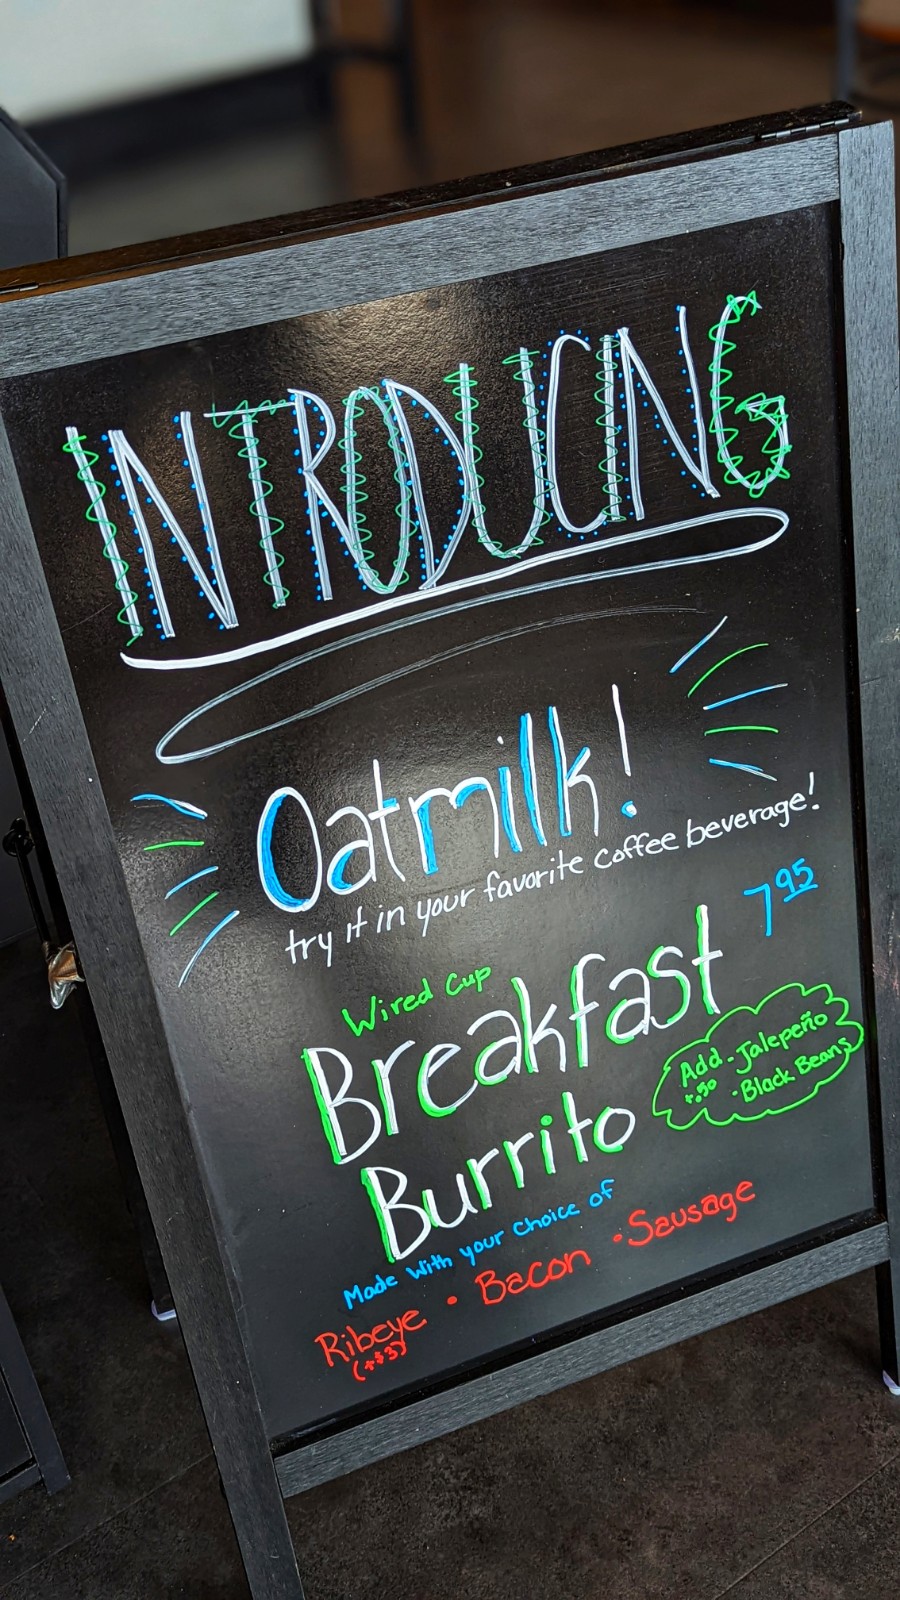 INTRODUCING
Oatmilk!
try it in your favorite coffee beverage!
Wired Cup
Breakfast 7.95
Burrito
Add - Jalepeño
+.50 · Black Beans
Made With your Choice of
Ribeye · Bacon · Sausage
(+$3)